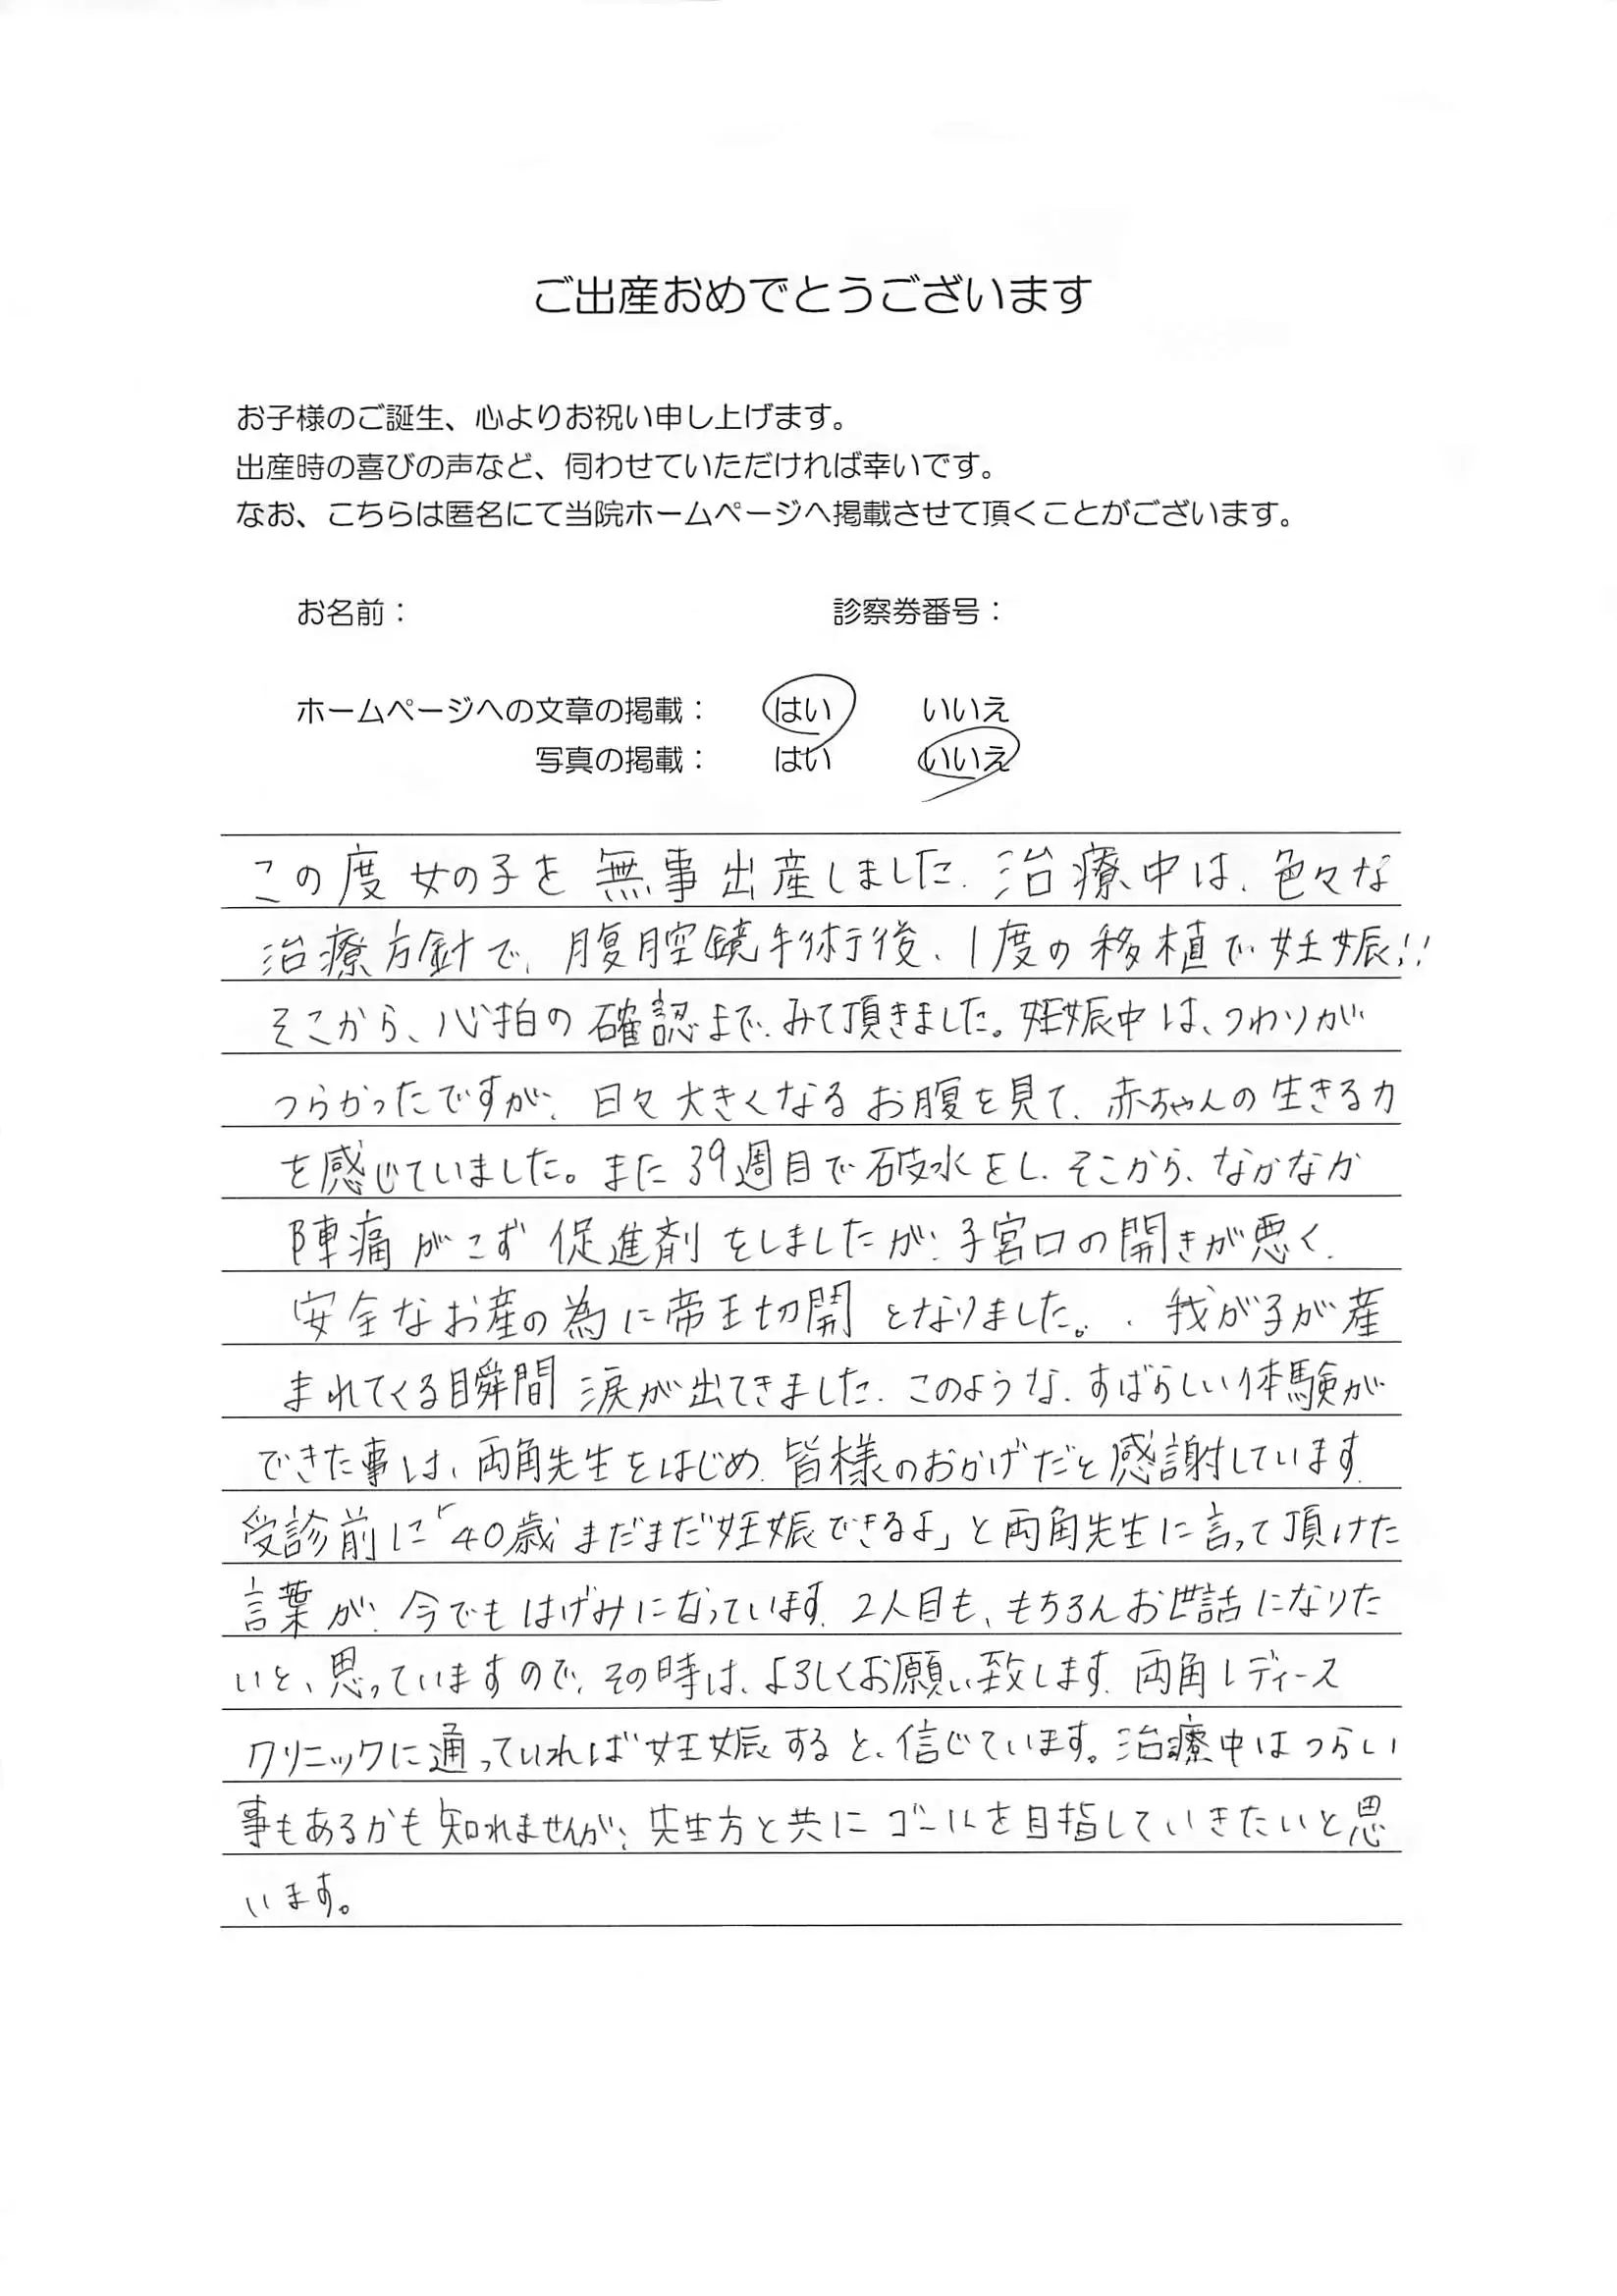 ご出産おめでとうございます
お子様のご誕生、心よりお祝い申し上げます。
出産時の喜びの声など、伺わせていただければ幸いです。
なお、こちらは匿名にて当院ホームページへ掲載させて頂くことがございます。
お名前： 診察券番号：
ホームページへの文章の掲載： はい いいえ
写真の掲載： はい いいえ
この度女の子を無事出産しました. 治療中は、色々な
治療方針で、腹腔鏡手術後、1度の移植で妊娠!!
そこから、心拍の確認まで、みて頂きました。妊娠中は、つわりが
つらかったですが、日々大きくなるお腹を見て、赤ちゃんの生きる力
を感じていました。また39週目で破水をし、そこから、なかなか
陣痛がこず促進剤をしましたが、子宮口の開きが悪く、
安全なお産の為に帝王切開となりました。. 我が子が産
まれてくる瞬間涙が出てきました. このような、すばらしい体験が
できた事は、両角先生をはじめ、皆様のおかげだと感謝しています.
受診前に「40歳まだまだ妊娠できるよ」と両角先生に言って頂けた
言葉が、今でもはげみになっています. 2人目も、もちろんお世話になりた
いと、思っていますので、その時は、よろしくお願い致します. 両角レディース
クリニックに通っていれば妊娠すると、信じています。治療中はつらい
事もあるかも知れませんが、先生方と共にゴールを目指していきたいと思
います。